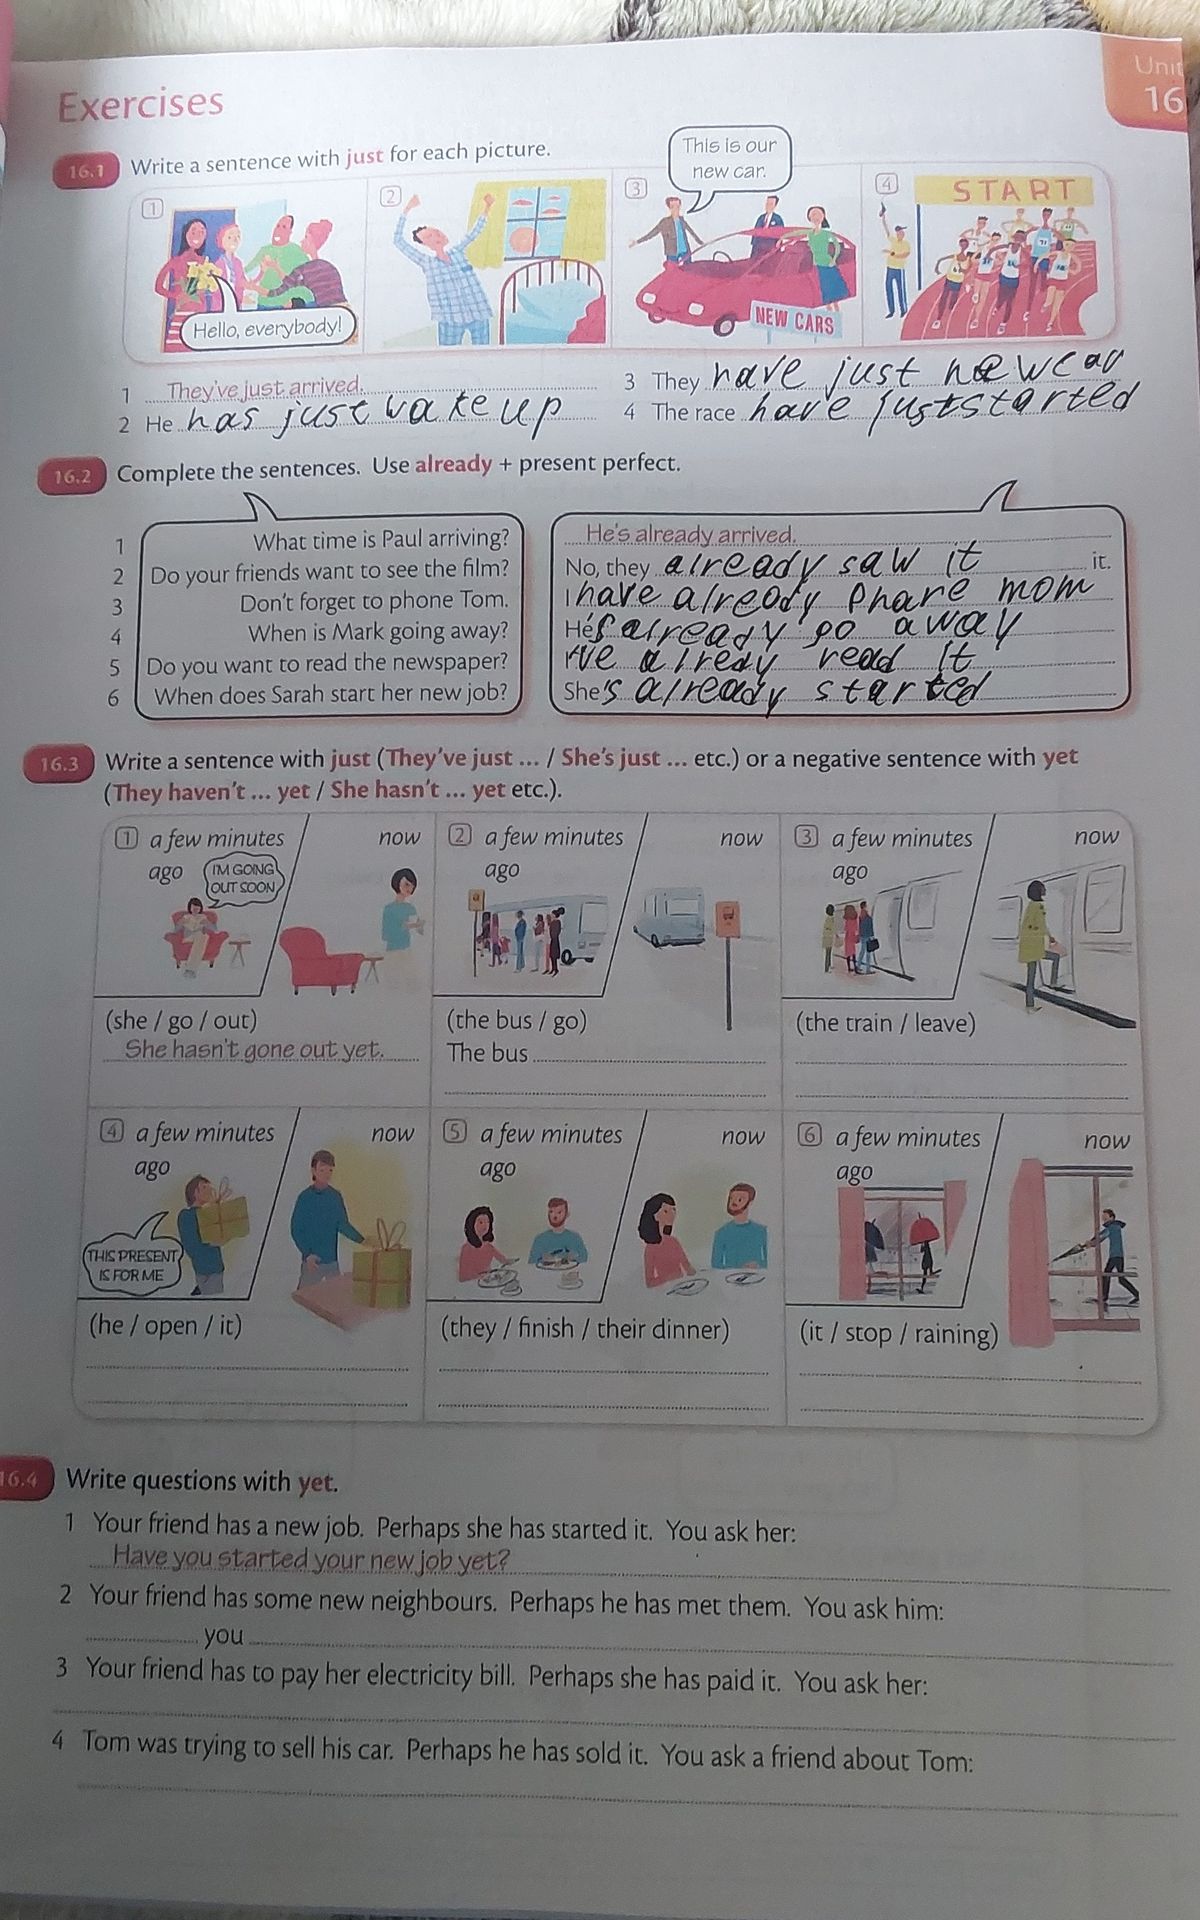 Unit
16
Exercises
16.1 Write a sentence with just for each picture.
This is our
new car.
1
2
3
4
START
Hello, everybody!
NEW CARS
1 They've just arrived.
3 They have just new car
2 He has just wake up
4 The race have just started
16.2 Complete the sentences. Use already + present perfect.
1 What time is Paul arriving? He's already arrived.
2 Do your friends want to see the film? No, they already saw it it.
3 Don't forget to phone Tom. I have already phone mom
4 When is Mark going away? He's already go away
5 Do you want to read the newspaper? I've alredy read it
6 When does Sarah start her new job? She's already started
16.3 Write a sentence with just (They've just ... / She's just ... etc.) or a negative sentence with yet
(They haven't ... yet / She hasn't ... yet etc.).
1 a few minutes
ago
now
I'M GOING
OUT SOON
(she / go / out)
She hasn't gone out yet.
2 a few minutes
ago
now
(the bus / go)
The bus
3 a few minutes
ago
now
(the train / leave)
4 a few minutes
ago
now
THIS PRESENT
IS FOR ME
(he / open / it)
5 a few minutes
ago
now
(they / finish / their dinner)
6 a few minutes
ago
now
(it / stop / raining)
16.4 Write questions with yet.
1 Your friend has a new job. Perhaps she has started it. You ask her:
Have you started your new job yet?
2 Your friend has some new neighbours. Perhaps he has met them. You ask him:
you
3 Your friend has to pay her electricity bill. Perhaps she has paid it. You ask her:
4 Tom was trying to sell his car. Perhaps he has sold it. You ask a friend about Tom: